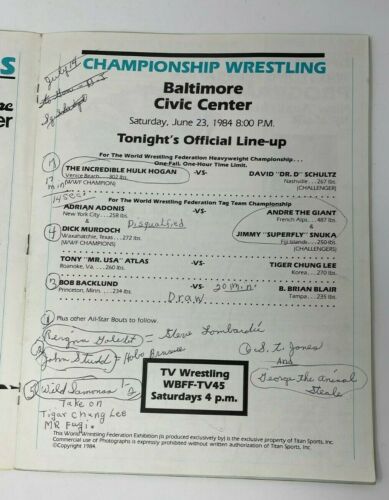 July 14
S
CHAMPIONSHIP WRESTLING
Baltimore
Civic Center
Saturday, June 23, 1984 8:00 P.M.
Tonight's Official Line-up
For The World Wrestling Federation Heavyweight Championship...
One-Fall. One-Hour Time Limit.
7
THE INCREDIBLE HULK HOGAN -VS- DAVID "DR. D" SCHULTZ
Venice Beach...302 lbs. Nashville...267 lbs.
(WWF CHAMPION) (CHALLENGER)
17 min
14 sec
For The World Wrestling Federation Tag Team Championship...
ADRIAN ADONIS ANDRE THE GIANT
New York City...258 lbs. French Alps...487 lbs.
Disqualified
& &
4
DICK MURDOCH JIMMY "SUPERFLY" SNUKA
Waxahatchie, Texas...272 lbs. Fiji Islands...250 lbs.
(WWF CHAMPIONS) (CHALLENGERS)
TONY "MR. USA" ATLAS -VS- TIGER CHUNG LEE
Roanoke, Va....260 lbs. Korea...270 lbs.
3
BOB BACKLUND -VS- 20 min B. BRIAN BLAIR
Princeton, Minn....234 lbs. Tampa...235 lbs.
Draw
1
Plus other All-Star Bouts to follow.
= Steve Lombardi
2
John Studd = Hobo
6 S. D. Jones
And
George The Animal
Steele
5
Wild Samonas
Take on
Tigar Chang Lee
MR Fugi.
TV Wrestling
WBFF-TV45
Saturdays 4 p.m.
This World Wrestling Federation Exhibition (is produced exclusively by) is the exclusive property of Titan Sports, Inc.
Commercial use of Photographs is expressly prohibited without written authorization of Titan Sports, Inc.
©Copyright 1984.